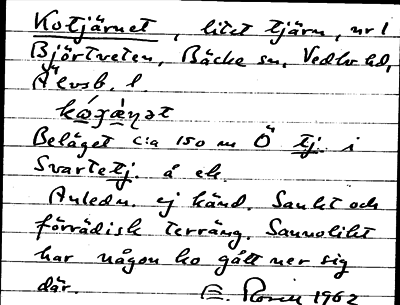 Kotjärnet, litet tjärn, nr 1
Björtveten, Bäcke sn, Vedbo hd,
Älvsb. l.
Beläget c:a 150 m Ö tj. i
Svartetj. å ek.
Anledn. ej känd. Sankt och
förrädisk terräng. Sannolikt
har någon ko gått ner sig
där. E. Rosén 1962